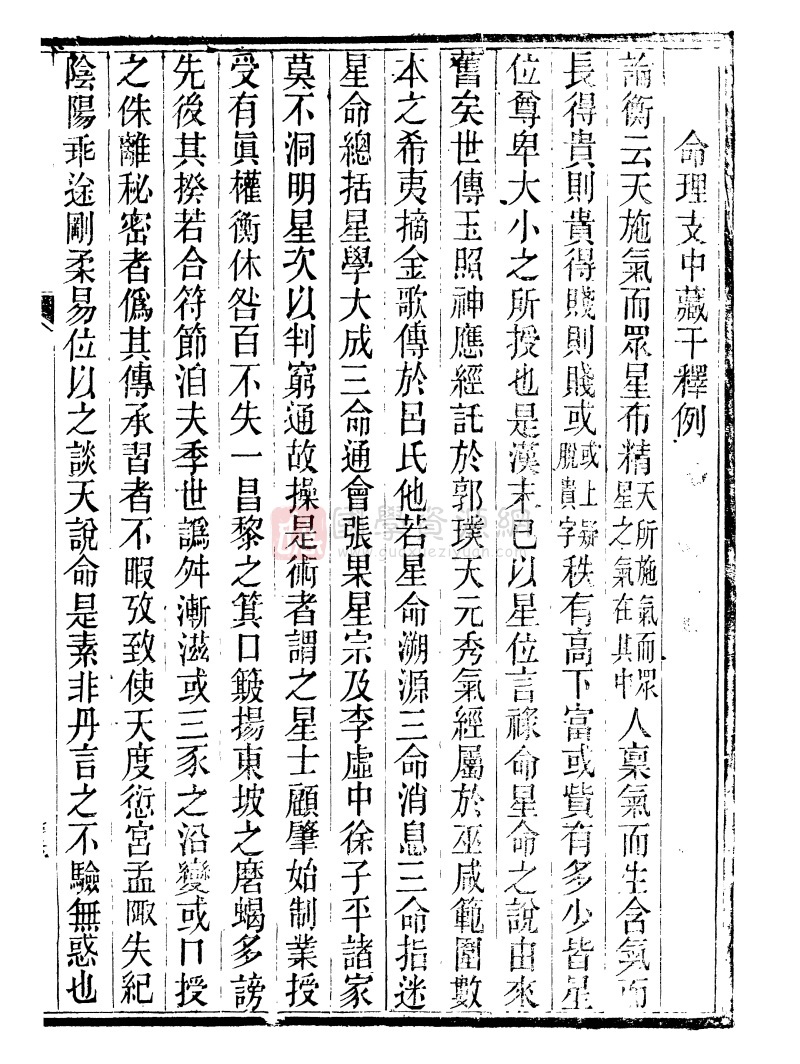 命理支中藏干釋例
論衡云天施氣而眾星布精天所施氣而眾星之氣在其中人稟氣而生含氣而
長得貴則貴得賤則賤或或上疑脫貴字秩有高下富或貲有多少皆星
位尊卑大小之所授也是漢末已以星位言祿命星命之說由來
舊矣世傳玉照神應經託於郭璞天元秀氣經屬於巫咸範圍數
本之希夷摘金歌傳於呂氏他若星命溯源三命消息三命指迷
星命總括星學大成三命通會張果星宗及李虛中徐子平諸家
莫不洞明星次以判窮通故操是術者謂之星士顧肇始制業授
受有眞權衡休咎百不失一昌黎之箕口簸揚東坡之磨蝎多謗
先後其揆若合符節洎夫季世譌舛漸滋或三豕之沿變或口授
之侏離秘密者僞其傳承習者不暇攷致使天度愆宮孟陬失紀
陰陽乖途剛柔易位以之談天說命是素非丹言之不驗無惑也
國學資源網
www.guoxueziyuan.com